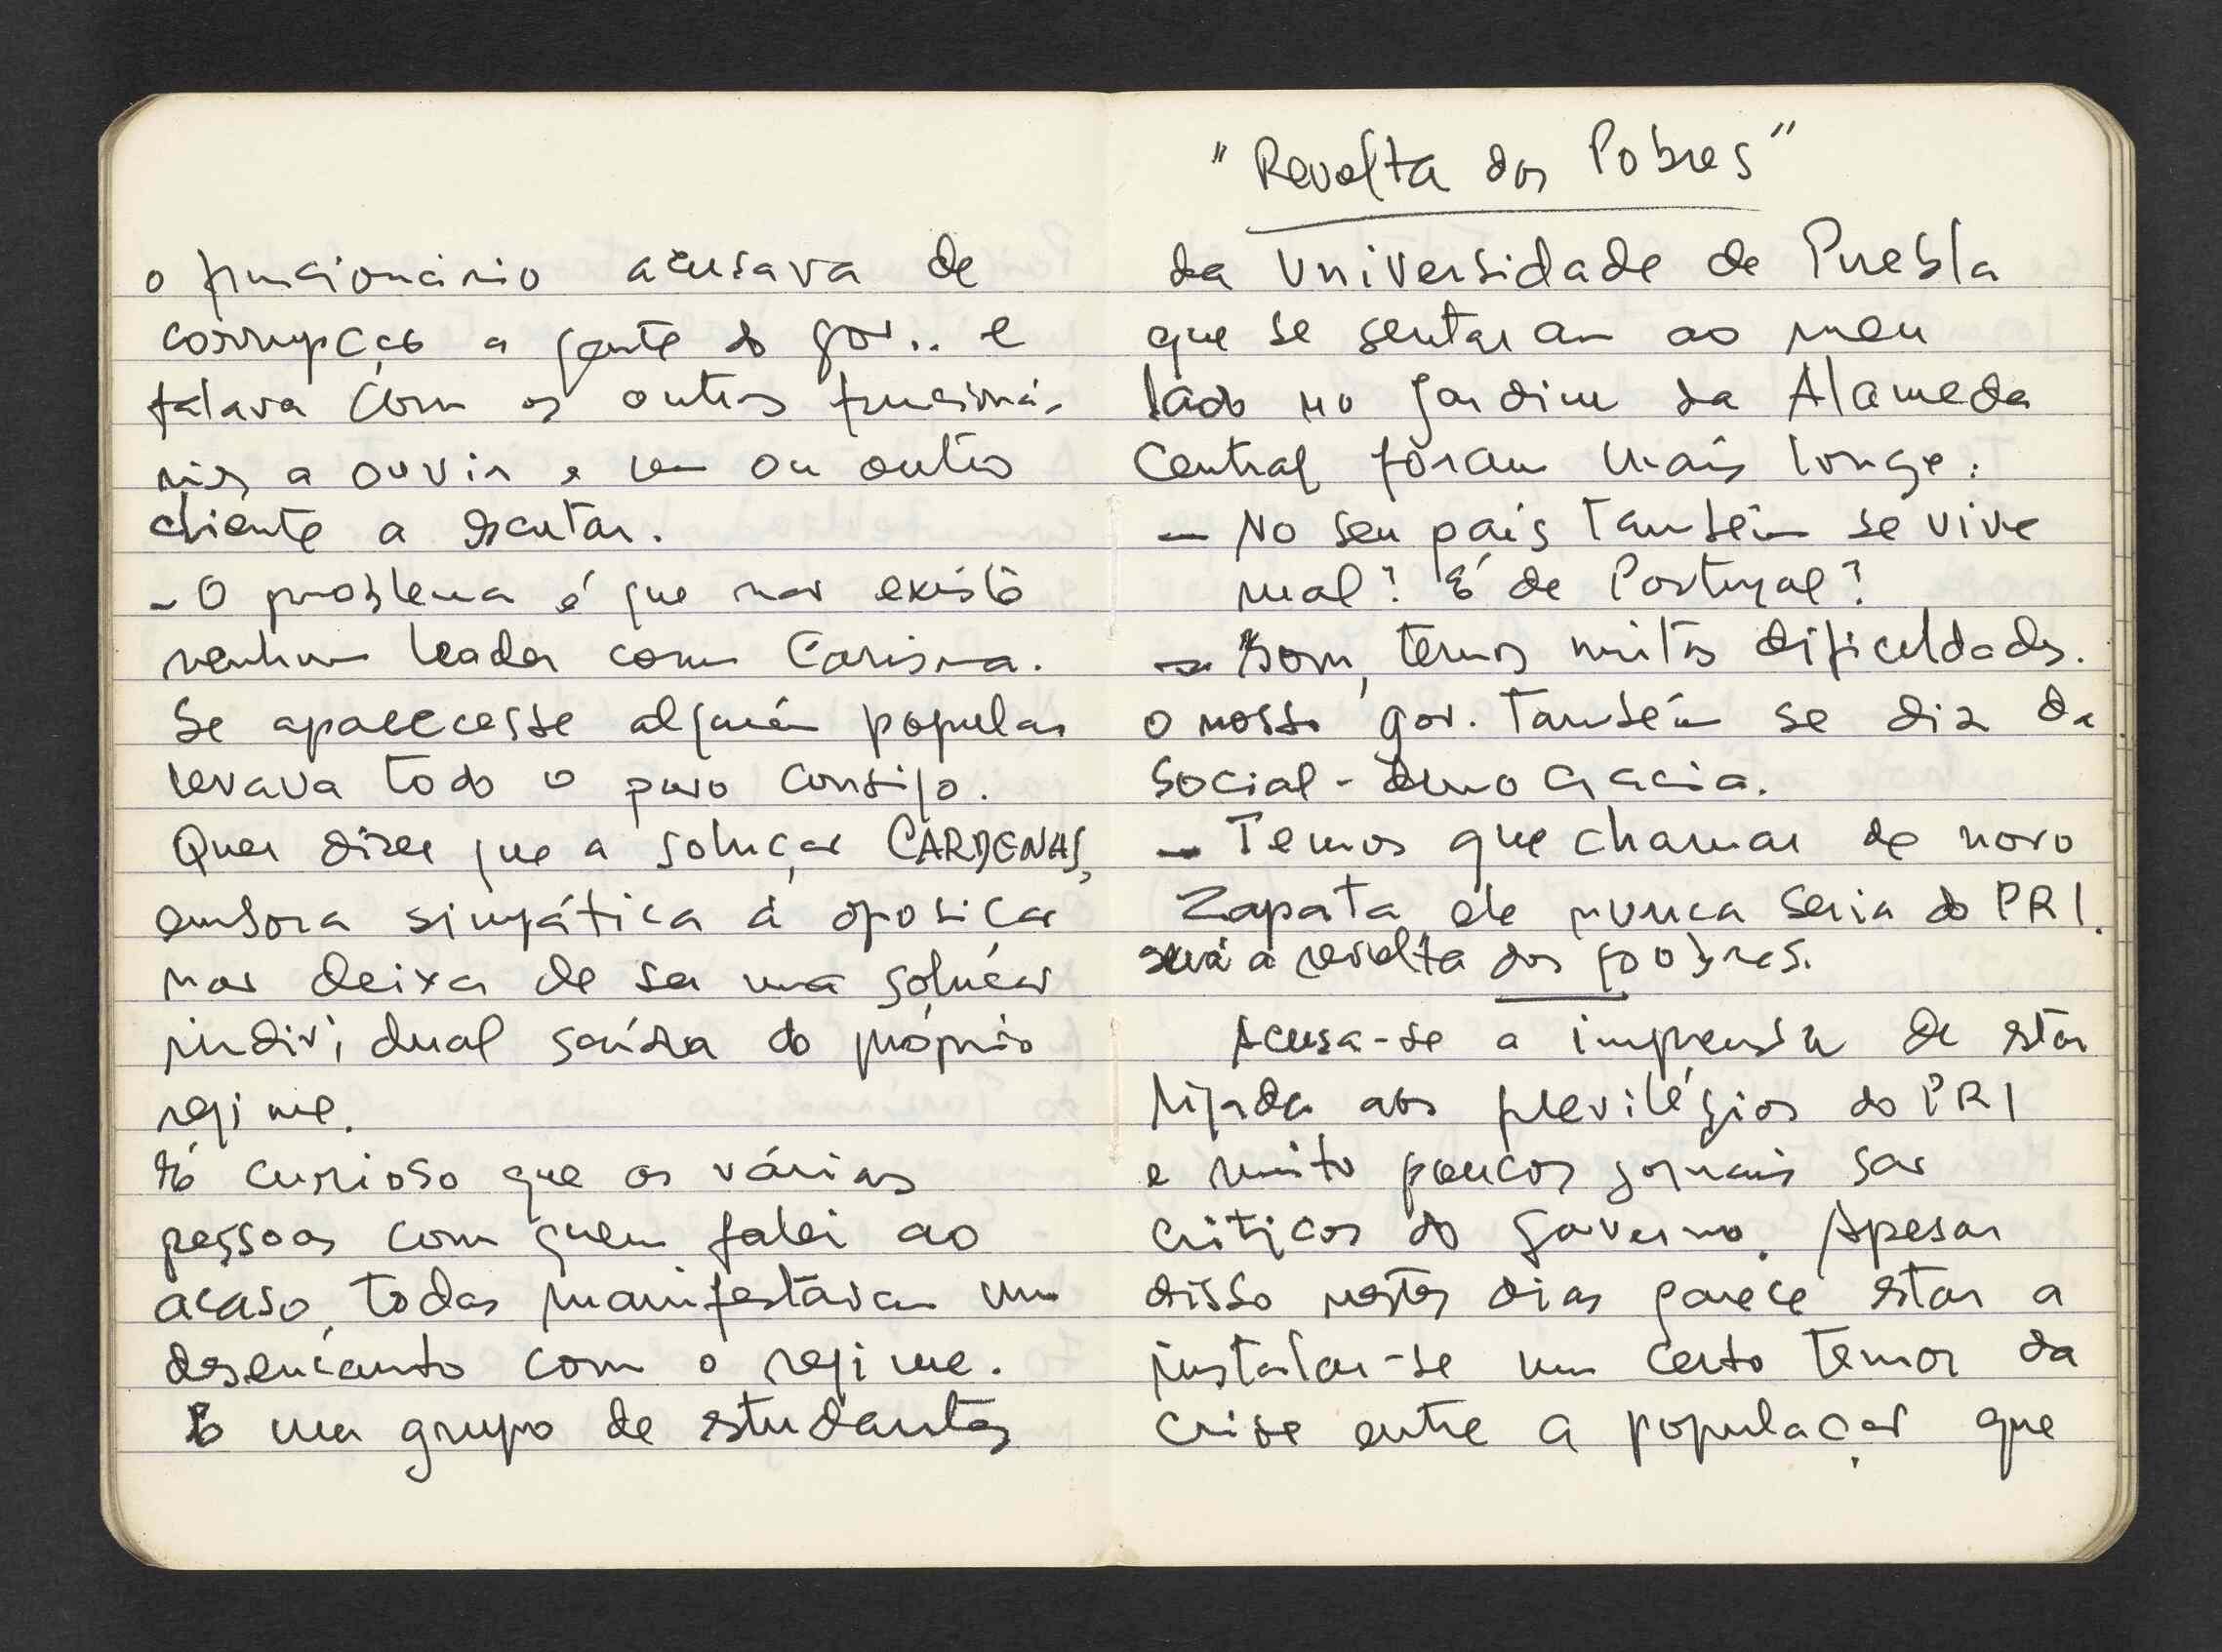 o funcionário acusava de
corrupção a gente do gov.. e
falava com os outros funcioná-
rios a ouvir e um ou outro
cliente a escutar.
- O problema é que não existe
nenhum leader com Carisma.
Se aparecesse alguém popular
levava todo o povo consigo.
Quer dizer que a solução CARDENAS,
embora simpática à oposição
não deixa de ser uma solução
individual saída do próprio
regime.
É curioso que as várias
pessoas com quem falei ao
acaso, todas manifestavam um
desencanto com o regime.
E um grupo de estudantes
"Revolta dos Pobres"
da Universidade de Puebla
que se sentaram ao meu
lado no Jardim da Alameda
Central foram mais longe:
- No seu país também se vive
mal? É de Portugal?
- Bom, temos muitas dificuldades.
o nosso gov. também se diz da
Social-democracia.
- Temos que chamar de novo
Zapata ele nunca seria do PRI.
será a revolta dos pobres.
Acusa-se a imprensa de estar
ligada aos previlégios do PRI
e muito poucos jornais são
criticos do governo. Apesar
disso nestes dias parece estar a
instalar-se um certo temor da
crise entre a população que